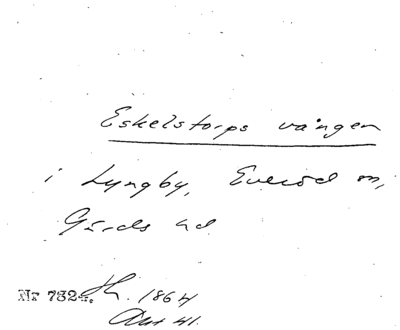 Eskelstorps vången
i Lyngby, Everöd sn,
Gärds hd
Nr 782. 1864
Akt 41.